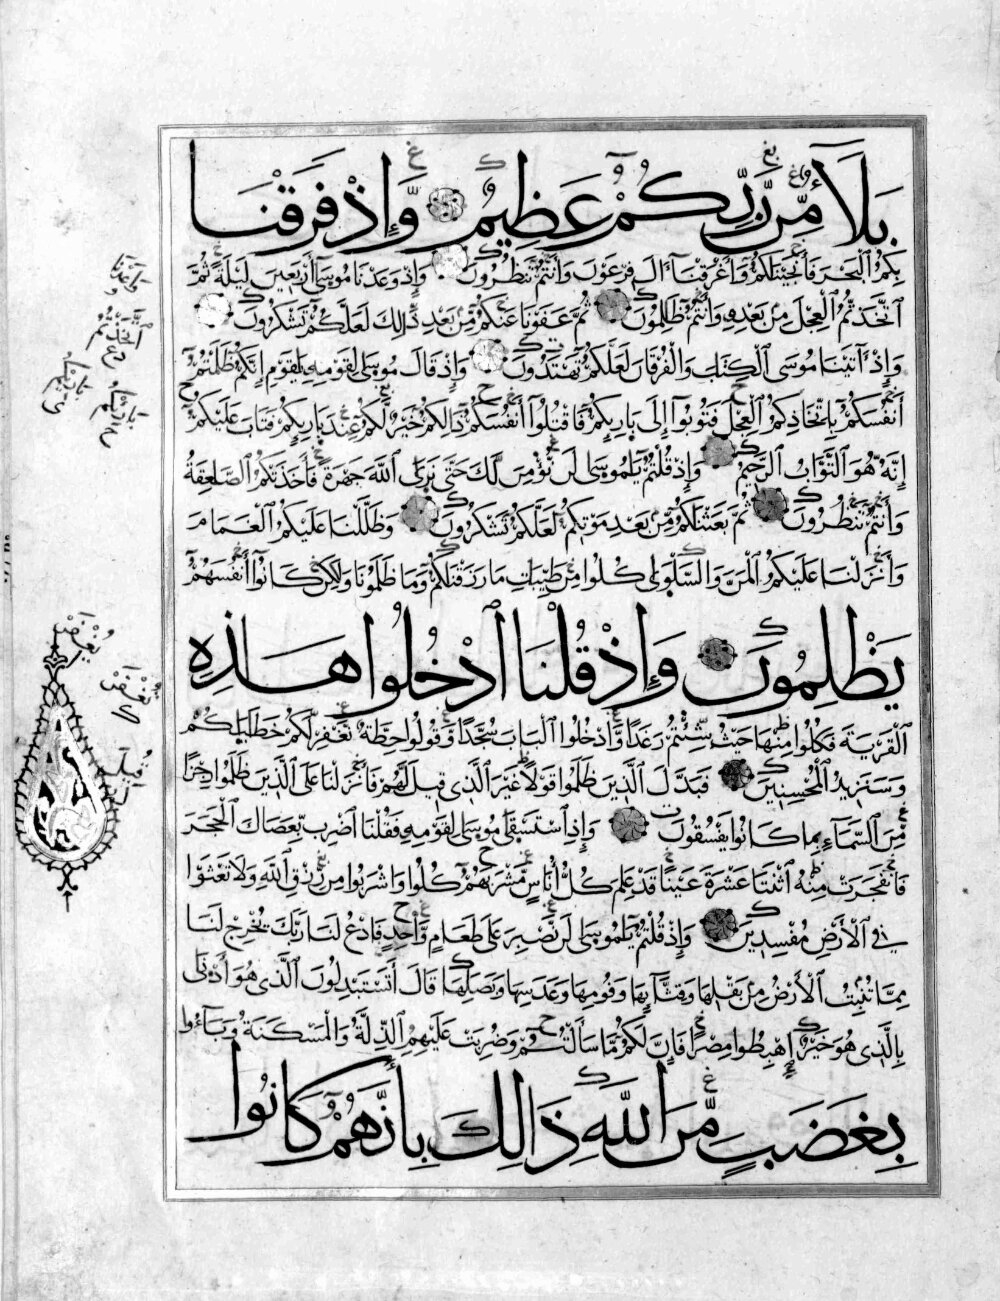 بَلَاءٌ مِّن رَّبِّكُمْ عَظِيمٌ وَإِذْ فَرَقْنَا
بِكُمُ الْبَحْرَ فَأَنجَيْنَاكُمْ وَأَغْرَقْنَا آلَ فِرْعَوْنَ وَأَنتُمْ تَنظُرُونَ وَإِذْ وَعَدْنَا مُوسَىٰ أَرْبَعِينَ لَيْلَةً ثُمَّ
اتَّخَذْتُمُ الْعِجْلَ مِن بَعْدِهِ وَأَنتُمْ ظَالِمُونَ ثُمَّ عَفَوْنَا عَنكُم مِّن بَعْدِ ذَٰلِكَ لَعَلَّكُمْ تَشْكُرُونَ
وَإِذْ آتَيْنَا مُوسَى الْكِتَابَ وَالْفُرْقَانَ لَعَلَّكُمْ تَهْتَدُونَ وَإِذْ قَالَ مُوسَىٰ لِقَوْمِهِ يَا قَوْمِ إِنَّكُمْ ظَلَمْتُمْ
أَنفُسَكُم بِاتِّخَاذِكُمُ الْعِجْلَ فَتُوبُوا إِلَىٰ بَارِئِكُمْ فَاقْتُلُوا أَنفُسَكُمْ ذَٰلِكُمْ خَيْرٌ لَّكُمْ عِندَ بَارِئِكُمْ فَتَابَ عَلَيْكُمْ
إِنَّهُ هُوَ التَّوَّابُ الرَّحِيمُ وَإِذْ قُلْتُمْ يَا مُوسَىٰ لَن نُّؤْمِنَ لَكَ حَتَّىٰ نَرَى اللَّهَ جَهْرَةً فَأَخَذَتْكُمُ الصَّاعِقَةُ
وَأَنتُمْ تَنظُرُونَ ثُمَّ بَعَثْنَاكُم مِّن بَعْدِ مَوْتِكُمْ لَعَلَّكُمْ تَشْكُرُونَ وَظَلَّلْنَا عَلَيْكُمُ الْغَمَامَ
وَأَنزَلْنَا عَلَيْكُمُ الْمَنَّ وَالسَّلْوَىٰ كُلُوا مِن طَيِّبَاتِ مَا رَزَقْنَاكُمْ وَمَا ظَلَمُونَا وَلَٰكِن كَانُوا أَنفُسَهُمْ
يَظْلِمُونَ وَإِذْ قُلْنَا ادْخُلُوا هَٰذِهِ
الْقَرْيَةَ فَكُلُوا مِنْهَا حَيْثُ شِئْتُمْ رَغَدًا وَادْخُلُوا الْبَابَ سُجَّدًا وَقُولُوا حِطَّةٌ نَّغْفِرْ لَكُمْ خَطَايَاكُمْ
وَسَنَزِيدُ الْمُحْسِنِينَ فَبَدَّلَ الَّذِينَ ظَلَمُوا قَوْلًا غَيْرَ الَّذِي قِيلَ لَهُمْ فَأَنزَلْنَا عَلَى الَّذِينَ ظَلَمُوا رِجْزًا
مِّنَ السَّمَاءِ بِمَا كَانُوا يَفْسُقُونَ وَإِذِ اسْتَسْقَىٰ مُوسَىٰ لِقَوْمِهِ فَقُلْنَا اضْرِب بِّعَصَاكَ الْحَجَرَ
فَانفَجَرَتْ مِنْهُ اثْنَتَا عَشْرَةَ عَيْنًا قَدْ عَلِمَ كُلُّ أُنَاسٍ مَّشْرَبَهُمْ كُلُوا وَاشْرَبُوا مِن رِّزْقِ اللَّهِ وَلَا تَعْثَوْا
فِي الْأَرْضِ مُفْسِدِينَ وَإِذْ قُلْتُمْ يَا مُوسَىٰ لَن نَّصْبِرَ عَلَىٰ طَعَامٍ وَاحِدٍ فَادْعُ لَنَا رَبَّكَ يُخْرِجْ لَنَا
مِمَّا تُنبِتُ الْأَرْضُ مِن بَقْلِهَا وَقِثَّائِهَا وَفُومِهَا وَعَدَسِهَا وَبَصَلِهَا قَالَ أَتَسْتَبْدِلُونَ الَّذِي هُوَ أَدْنَىٰ
بِالَّذِي هُوَ خَيْرٌ اهْبِطُوا مِصْرًا فَإِنَّ لَكُم مَّا سَأَلْتُمْ وَضُرِبَتْ عَلَيْهِمُ الذِّلَّةُ وَالْمَسْكَنَةُ وَبَاءُوا
بِغَضَبٍ مِّنَ اللَّهِ ذَٰلِكَ بِأَنَّهُمْ كَانُوا